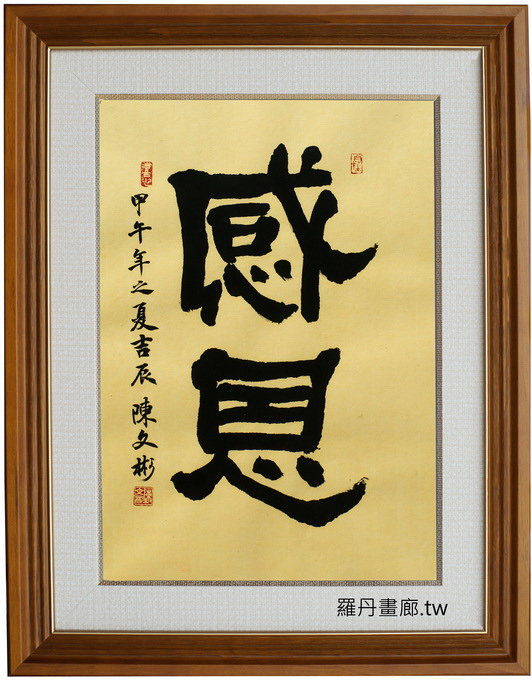 感恩
甲午年之夏吉辰 陳文彬
羅丹畫廊.tw